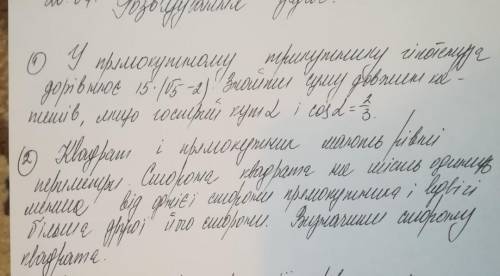 Розв'язування задач.
① У прямокутному трикутнику гіпотенуза
дорівнює 15·(√5-2). Знайти суму довжин ка-
тетів, якщо гострий кут α і cos α = 2/3.
② Квадрат і прямокутник мають рівні
периметри. Сторона квадрата на шість одиниць
менша від однієї сторони прямокутника і вдвічі
більша другої його сторони. Визначити сторону
квадрата.